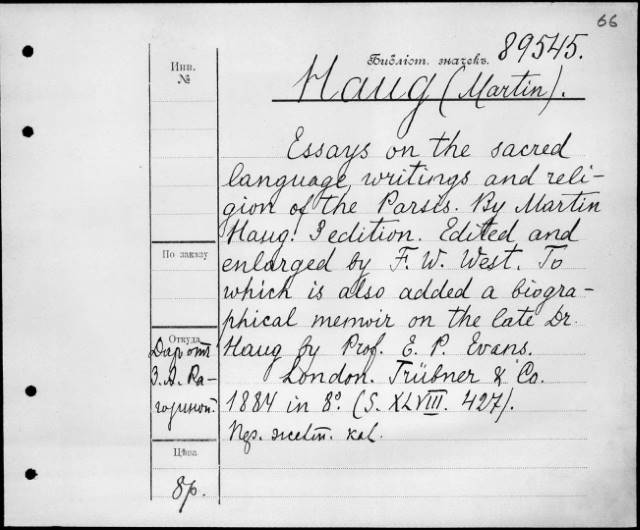 66
Библіот. значекъ. 89545.
Инв.
№
Haug (Martin).
Essays on the sacred
language, writings and reli-
gion of the Parsis. By Martin
Haug. 3 edition. Edited and
По заказу
enlarged by F. W. West. To
which is also added a biogra-
phical memoir on the late Dr.
Откуда
Haug by Prof. E. P. Evans.
Даръ отъ
З. А. Ра-
гозиной.
London. Trübner & Co.
1884 in 8º. (S. XLVIII. 427).
кал.
Цѣна
8р.